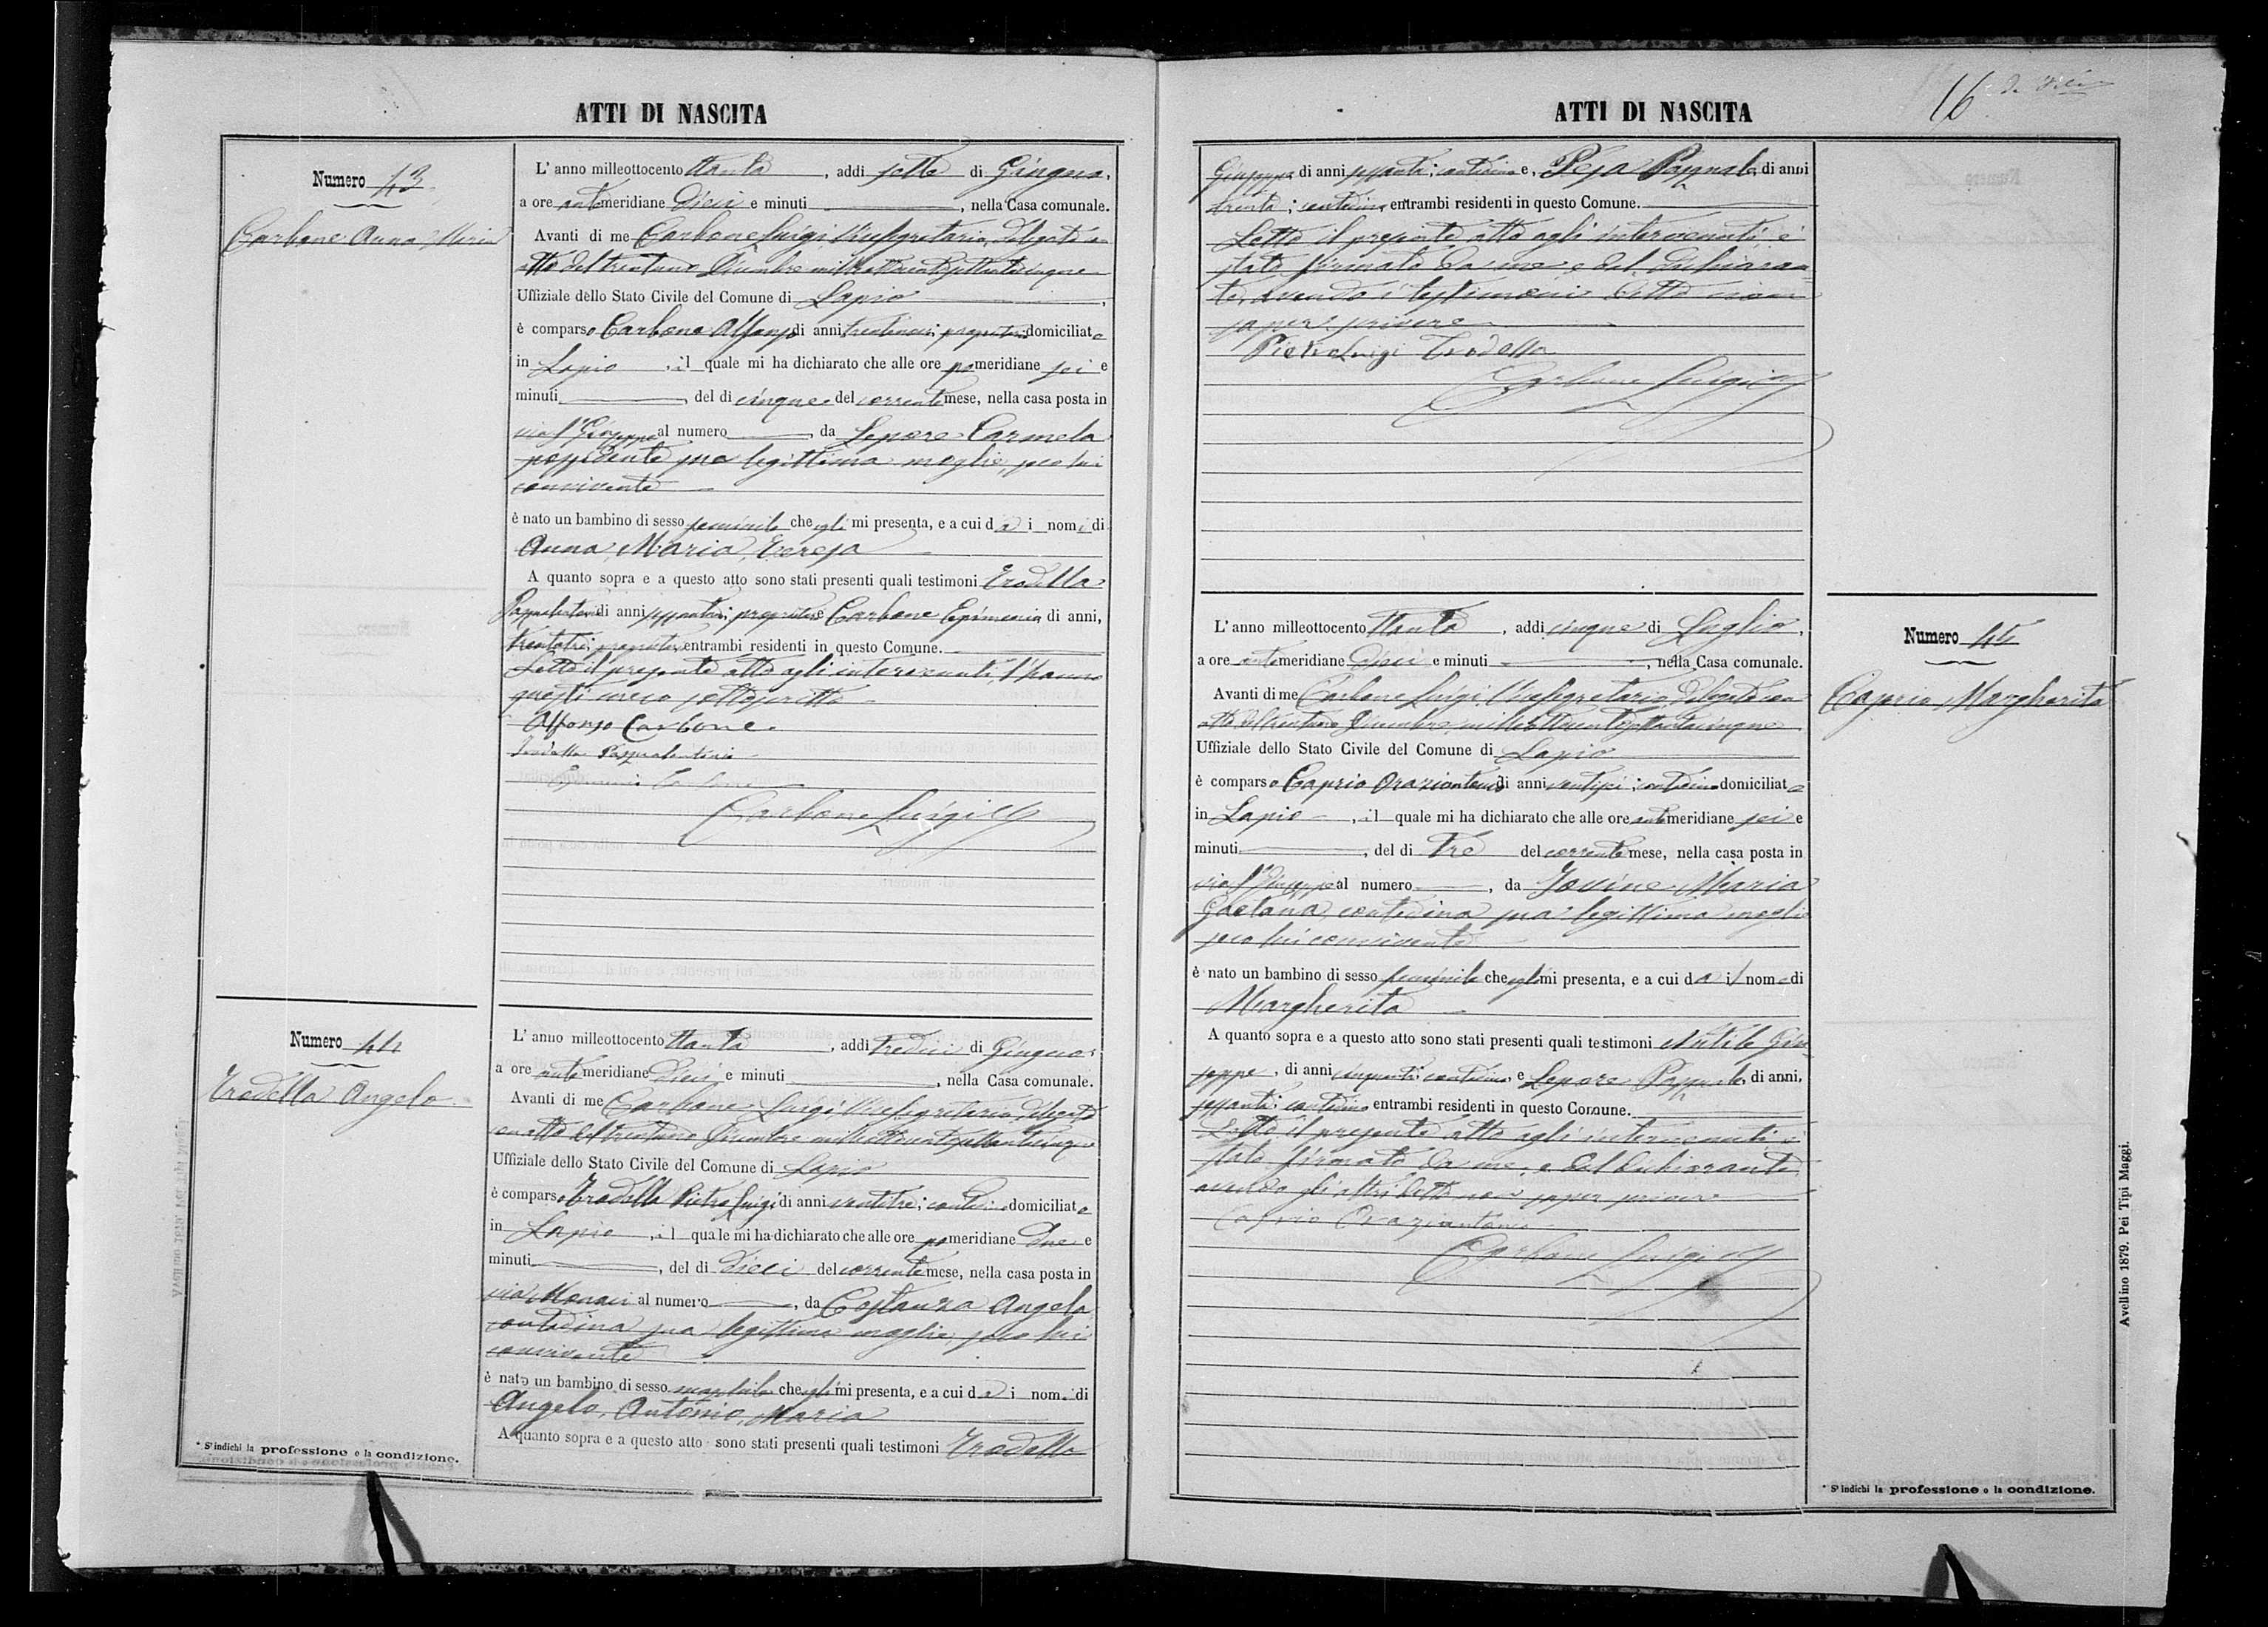 ATTI DI NASCITA
Numero 43
Carbone Anna Maria
L' anno milleottocento ttanta, addi sette di Giugno,
a ore antemeridiane dieci e minuti, nella Casa comunale.
Avanti di me Carbone Luigi Vicesegretario, delegato con
atto del trentuno Dicembre milleottocentosettantacinque
Uffiziale dello Stato Civile del Comune di Lapio
è comparso Carbone Alfonso di anni proprietario domiciliato
in Lapio, il quale mi ha dichiarato che alle ore pomeridiane sei e
minuti, del di cinque del corrente mese, nella casa posta in
via S. Giuseppe al numero da Lepore Carmela
possidente sua legittima moglie, seco lui
convivente
è nato un bambino di sesso feminile che egli mi presenta, e a cui dà i nomi di
Anna, Maria, Teresa
A quanto sopra e a questo atto sono stati presenti quali testimoni Trodella
di anni proprietario e Carbone Epimenio di anni,
trentatre; proprietario entrambi residenti in questo Comune.
Letto il presente atto agli intervenuti l'hanno
questi meco sottoscritto
Alfonso Carbone
Trodella Pasqualantonio
Epimenio Carbone
Carbone Luigi
Numero 44
Trodella Angelo
L' anno milleottocento ttanta, addi tredici di Giugno,
a ore antemeridiane dieci e minuti, nella Casa comunale.
Avanti di me Carbone Luigi Vicesegretario, delegato
con atto del trentuno Dicembre milleottocentosettantacinque
Uffiziale dello Stato Civile del Comune di Lapio
è comparso Trodella Pietro Luigi di anni ventitre; contadino domiciliato
in Lapio, il quale mi ha dichiarato che alle ore pomeridiane due e
minuti, del di dieci del corrente mese, nella casa posta in
via Monaci al numero, da Costanza Angela
contadina sua legittima moglie, seco lui
convivente
è nato un bambino di sesso maschile che egli mi presenta, e a cui dà i nomi di
Angelo, Antonio, Maria
A quanto sopra e a questo atto sono stati presenti quali testimoni Trodella
* S' indichi la professione o la condizione.
ATTI DI NASCITA
16
Giuseppe di anni sessanta; contadino e, Pesa Pasquale, di anni
trenta; contadino entrambi residenti in questo Comune.
Letto il presente atto agli intervenuti, è
stato firmato da me e dal dichiaran-
te, avendo i testimoni detto non
saper scrivere
Pietroluigi Trodella
Carbone Luigi
Numero 45
Caprio Margherita
L' anno milleottocento ttanta, addi cinque di Luglio,
a ore antemeridiane dieci e minuti, nella Casa comunale.
Avanti di me Carbone Luigi, Vicesegretario, delegato con
atto del trentuno Dicembre milleottocentosettantacinque
Uffiziale dello Stato Civile del Comune di Lapio
è comparso Caprio Oraziantonio di anni ventisei; contadino domiciliato
in Lapio, il quale mi ha dichiarato che alle ore antemeridiane sei e
minuti, del di tre del corrente mese, nella casa posta in
via S. Giuseppe al numero, da Iovine Maria
Gaetana, contadina sua legittima moglie
seco lui convivente
è nato un bambino di sesso feminile che egli mi presenta, e a cui dà il nome di
Margherita
A quanto sopra e a questo atto sono stati presenti quali testimoni Nutile Giu-
seppe, di anni cinquanta; contadino e Lepore Pasquale, di anni,
sessanta; contadino entrambi residenti in questo Comune.
Letto il presente atto agli intervenuti è
stato firmato da me, e dal dichiarante
avendo gli altri detto non saper scrivere
Caprio Oraziantonio
Carbone Luigi
* S' indichi la professione o la condizione.
Avellino 1879. Pei Tipi Maggi.